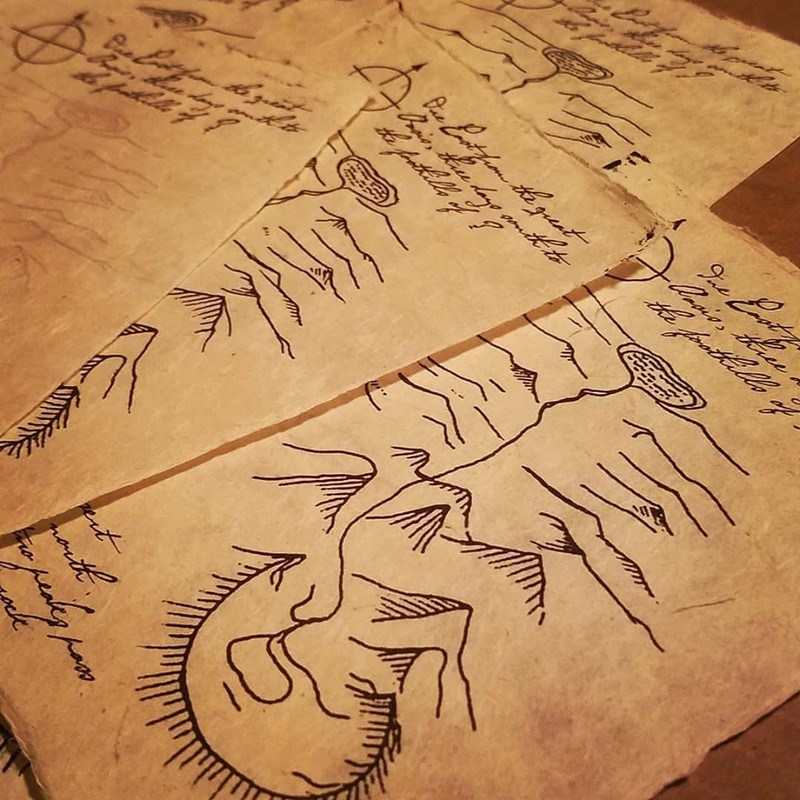 Due East from the great
Oasis, three days south to
the foothills of ?
Due East from the great
Oasis, three days south to
the foothills of ?
the great
south to
the foothills of ?
Due East
Oasis, three
the foothills of
north
two peaks pass